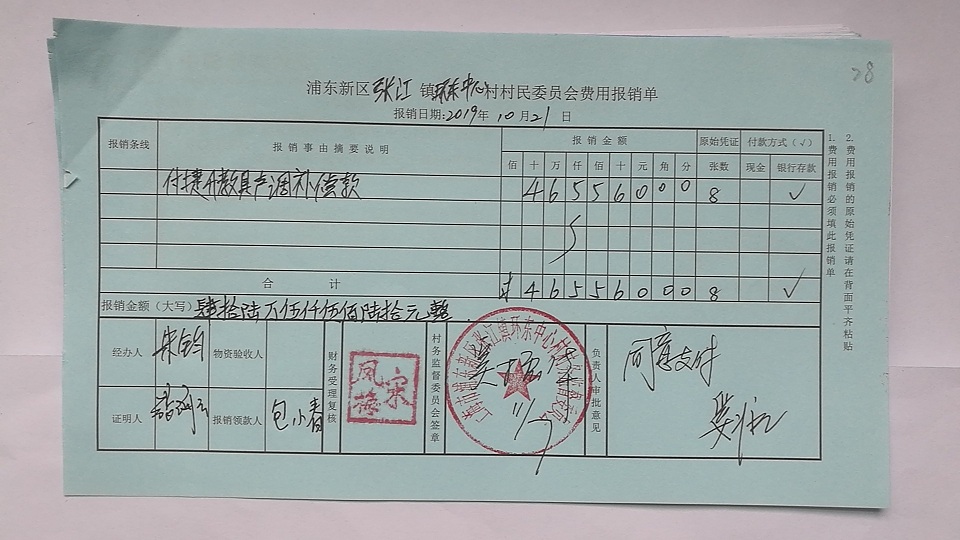 28
浦东新区张江镇环东中心村村民委员会费用报销单
报销日期:2019年10月21日
报销条线 报销事由摘要说明 报销金额 原始凭证 付款方式（√）
佰 十 万 仟 佰 十 元 角 分 张数 现金 银行存款
付 教具 调补偿款 4 6 5 5 6 0 0 0 8 √
合计 ¥ 4 6 5 5 6 0 0 0 8 √
报销金额（大写） 肆拾陆万伍仟伍佰陆拾元整
经办人 物资验收人 财务受理复核 村务监督委员会签章 负责人审批意见 同意支付
宋凤梅
张江镇环东中心村
证明人 报销领款人 包小春
1.费用报销必须填此报销单
2.费用报销的原始凭证请在背面平齐粘贴